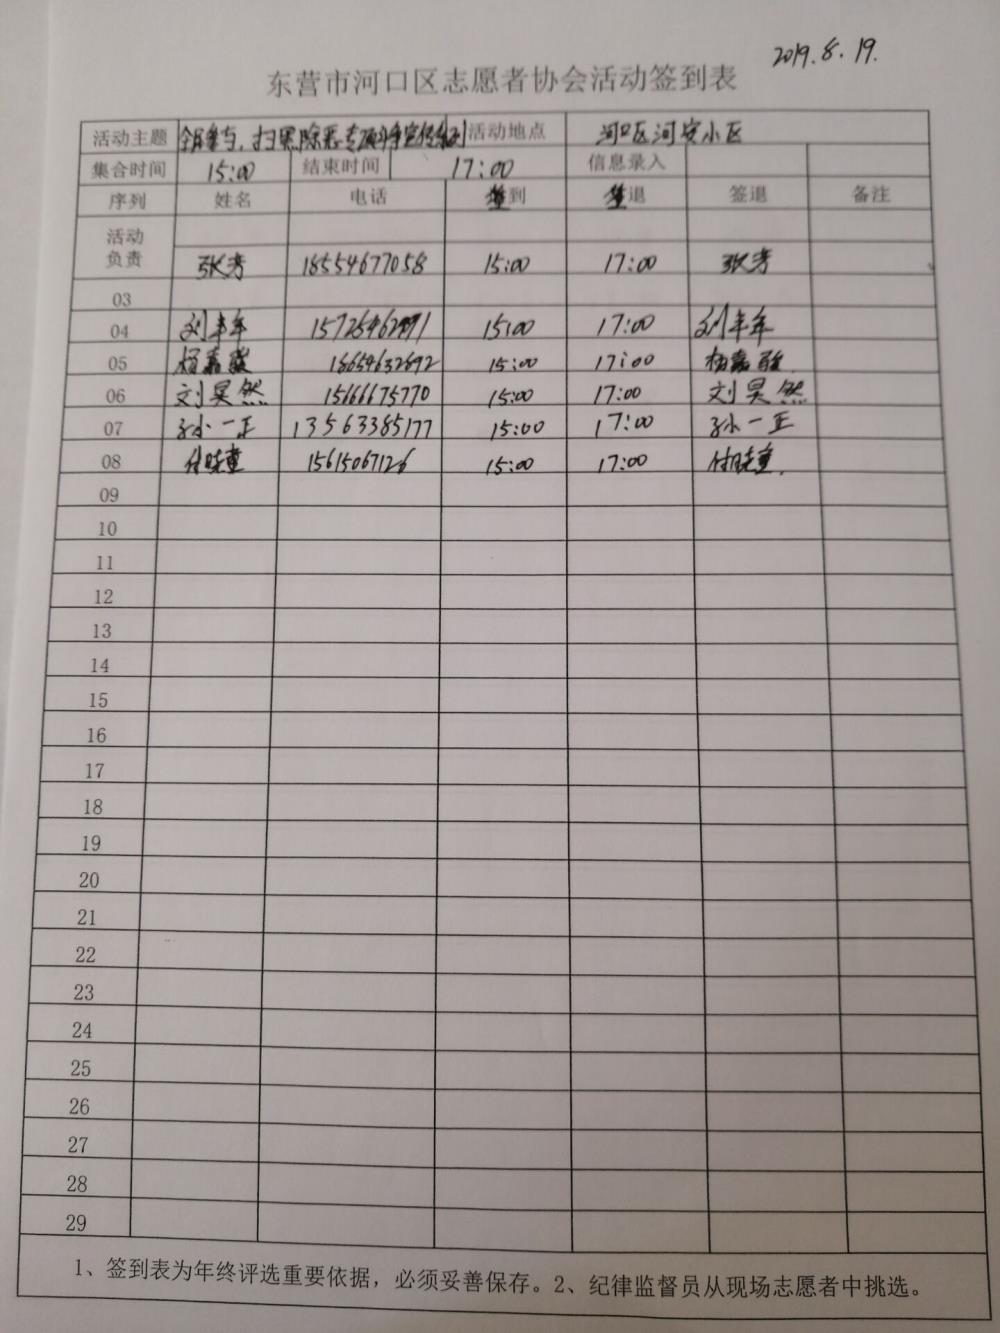 2019.8.19.
东营市河口区志愿者协会活动签到表
活动主题 全民参与,扫黑除恶专项斗争宣传系列 活动地点 河口区河安小区
集合时间 15:00 结束时间 17:00 信息录入
序列 姓名 电话 签到 签退 签退 备注
活动
负责 张芳 18554677058 15:00 17:00 张芳
03
04 刘丰年 15:00 17:00 刘丰年
05 杨嘉骏 18654632692 15:00 17:00 杨嘉骏
06 刘昊然 15666675770 15:00 17:00 刘昊然
07 孙一正 13563385177 15:00 17:00 孙一正
08 15615067126 15:00 17:00
09
10
11
12
13
14
15
16
17
18
19
20
21
22
23
24
25
26
27
28
29
1、签到表为年终评选重要依据，必须妥善保存。2、纪律监督员从现场志愿者中挑选。